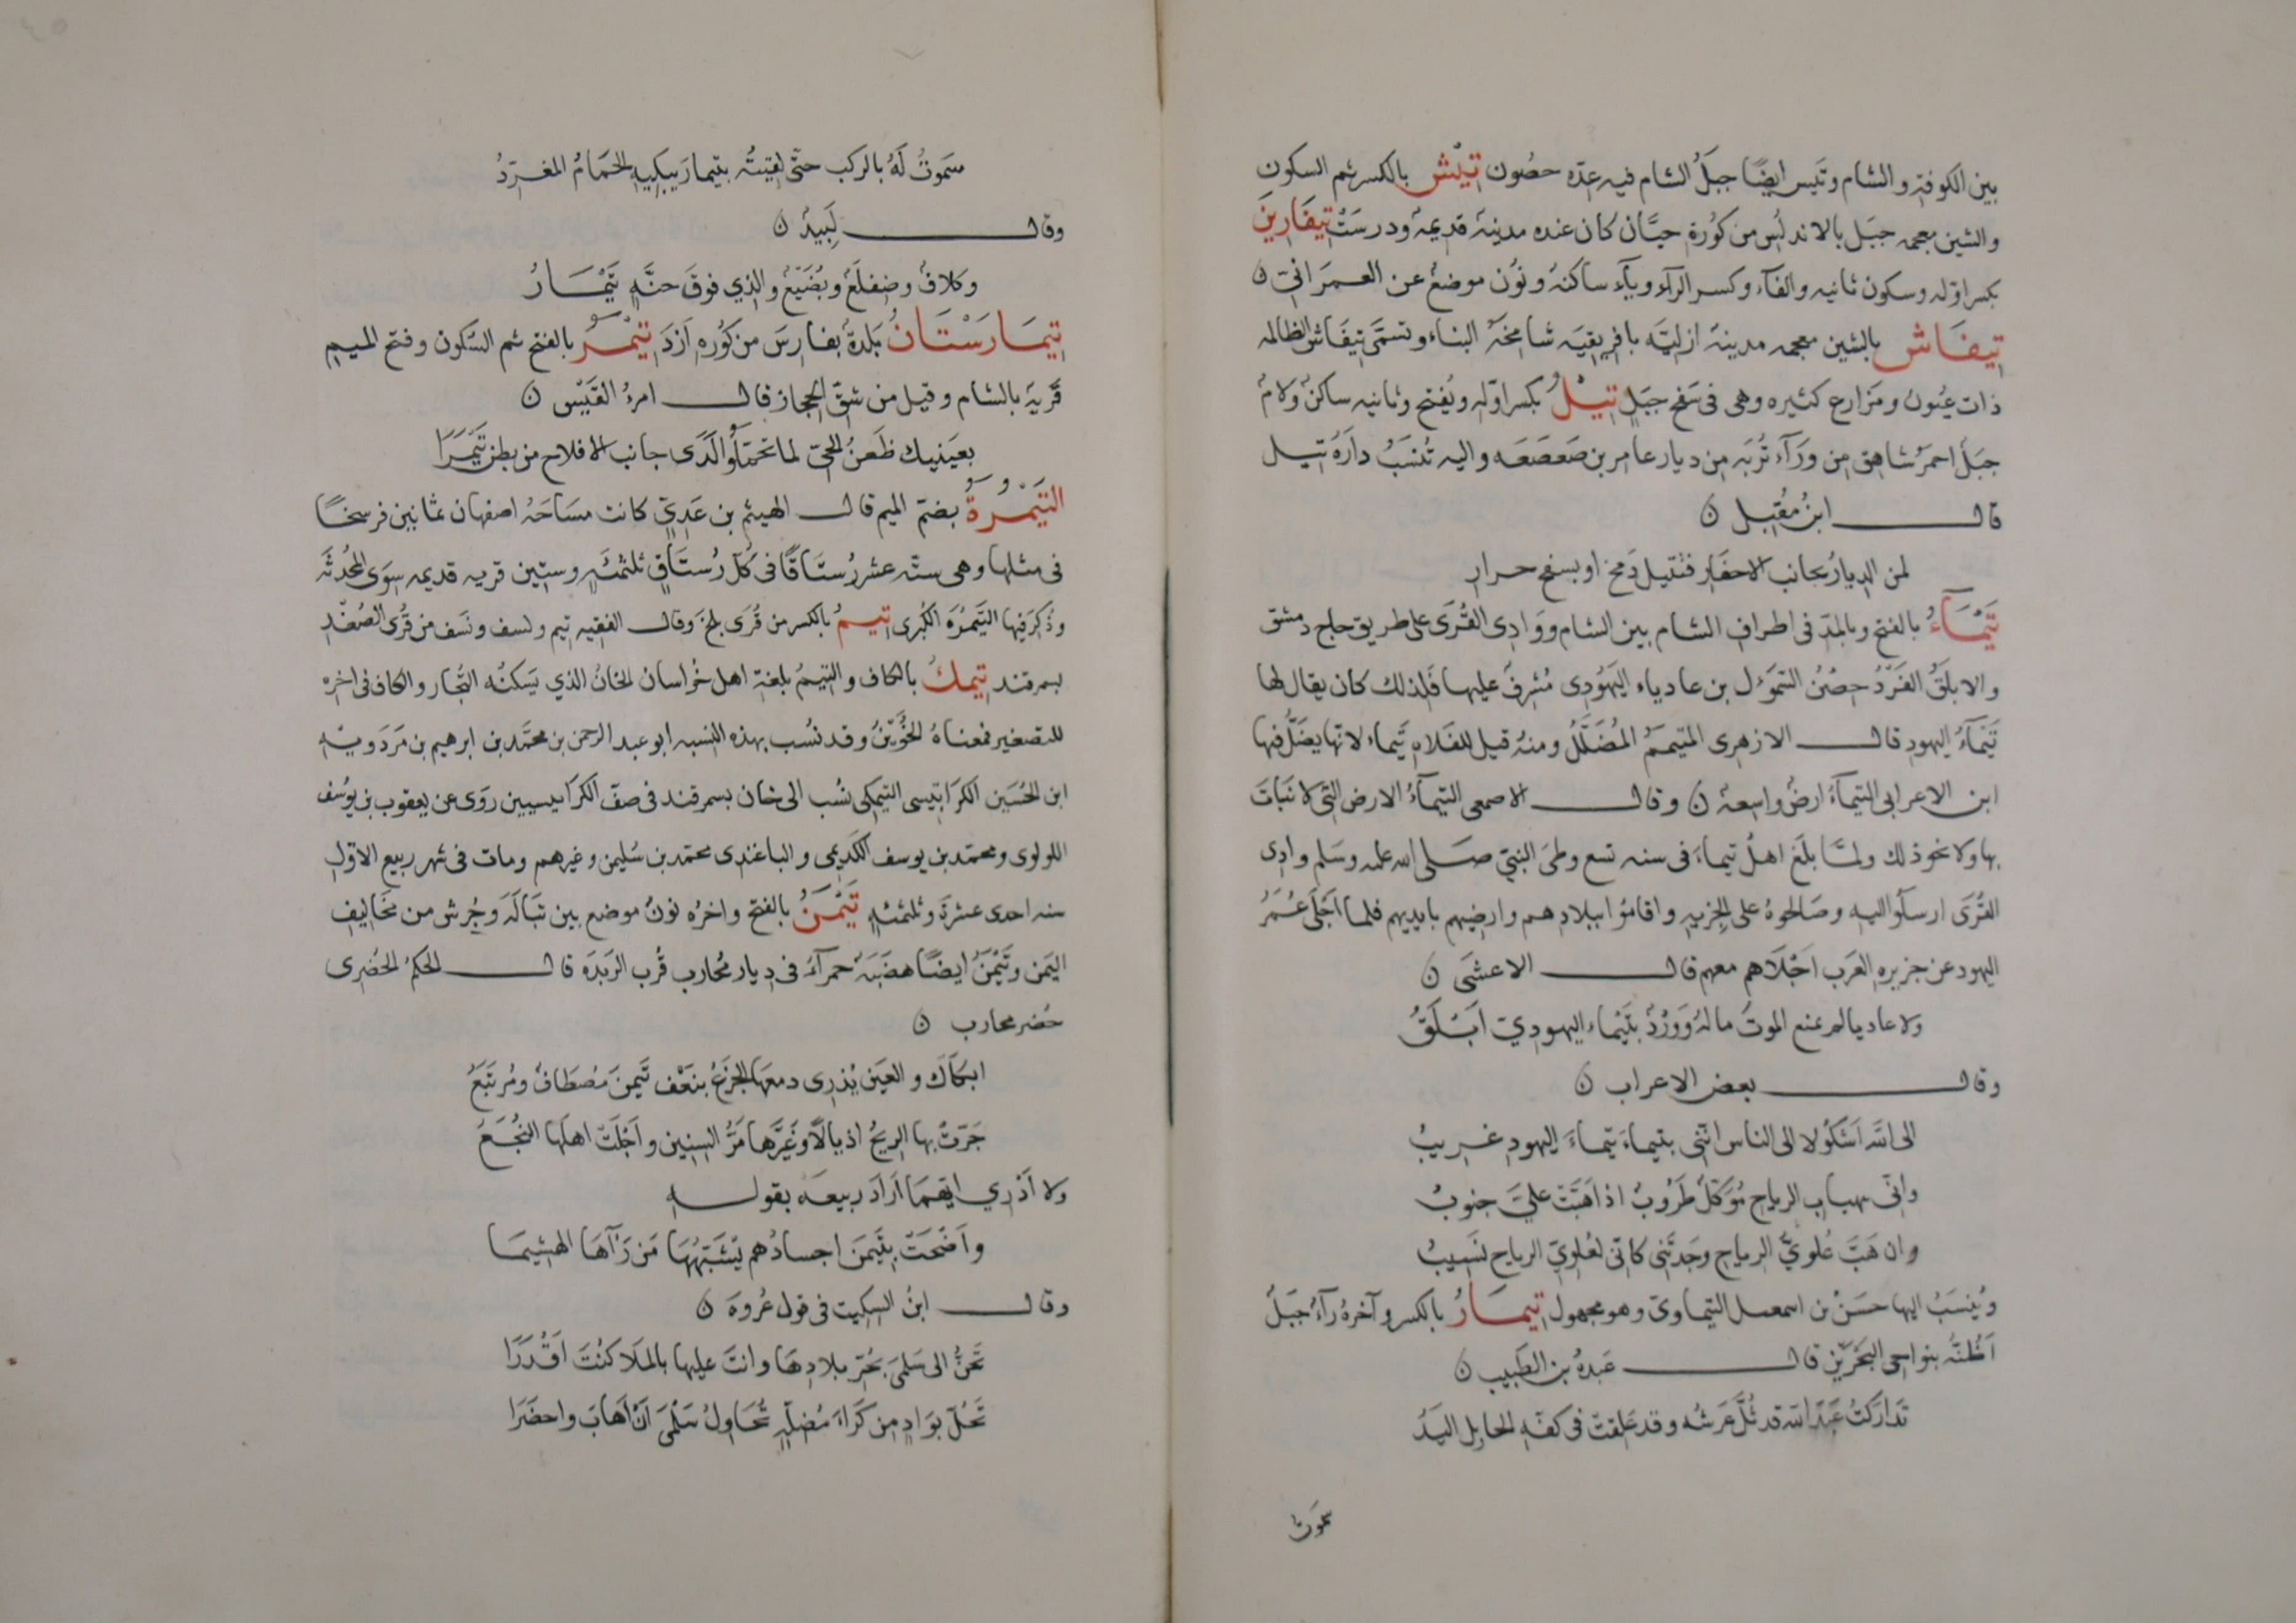 بين الكوفة والشام وتَيس ايضًا جبَلُ الشام فيه عدّه حصُون تِيْش بالكسر ثم السكون
والشين معجمه جبَل بالاندلُس من كوُرة جيَّان كان عنده مدينةُ قديمة ودرسَتْ تِيفَارِينَ
بكسر اوّله وسكون ثانيه والفآء وكسر الرآء ويآء ساكنهُ ونوُن موضعُ عن العمرَانيّ ن
تِيفَاش بالشين معجمه مدينهَ ازليَّه بافريقيَه شامخهَ البناء وتسمَّى تِيفَاش الظالمه
ذات عيُون ومَزارع كثيره وهى فى سَفح جبَلٍ تِيْلُ بكسر اوّله ويُفتح وثانيه ساكنُ ولامُ
جبَلُ احمرُ شاهق من ورَآء تُربَه من ديار عامر بن صَعصَعَه واليه تُنسَبُ دارَهُ تيل
قال ابنُ مُقبل ن
لمن الديارُ بجانب الاحفَارِ فبَتيل دَمخ او بسفح حرارِ
تَيْمَآءُ بالفتح وبالمدّ فى اطراف الشام بين الشام ووَادِى القُرَى على طريق حاج دمشق
والابلَقُ الفَرْدُ حِصْنُ السَّمَوءَل بن عادياء اليَهوُدى مُشرفُ عليها فَلذلك كان يقال لها
تَيْمَآءُ اليهودِ قال الازهرى المتيمم المُضَلَّلُ ومنهُ قيل للفَلاه تَيماء لانّها يضَلُّ فيها
ابن الاعرابى التيمآءُ ارضُ واسعة ن وقال الاصمعى التيمآءُ الارض التى لا نَباتَ
بها ولا نحو ذلك ولمَّا بلَغَ اهلُ تيماءَ فى سنه تسع وطئ النبىّ صلى الله عليه وسَلم وادِى
القُرَى ارسلُوا اليه وصَالحوهُ على الجزيه واقامُوا ببلادهم وارضيهم بايديهم فلما اَجْلَى عُمَرُ
اليهود عن جزيره العرَب اَجْلَاهم معهم قال الاعشَى ن
ولا عاديا لم يمنع الموتُ مالهُ ووَردُ بتَيْمَاءِ اليهوديّ اَبْلَقُ
وقال بعض الاعراب ن
الى الله اَشكُو لا الى الناس انَّنى بتيماءَ تيماءَ اليهودِ غريبُ
وانّى بهبابِ الرياح مُوَكّلُ طرَوُبُ اذا هَبَّت علىَّ جنوبُ
وان هَبَّ عُلوىُّ الرياحِ وجَدتَّنى كانّى لعُلوىّ الرياح نسَيبُ
ويُنسَبُ اليها حسَنُ بن اسمعيل التيماوىّ وهو مجهول تِيمَارُ بالكسر وآخرهُ رآءُ جبَلُ
اَظُنّهُ بنواحى البَحْرَيْن قال عَبدهُ بن الطَبيب ن
تَدارَكتُ عَبدَ الله قد ثُلَّ عَرشُه وقد عَلِقَتْ فى كفّهِ الحابل اليَدُ
سموَتُ
سَموتُ لَهُ بالركب حتّى لقيتهُ بتيمارَ يبكيهِ الحمَامُ المغرّدُ
وقال لَبِيدُ ن
وكلافُ وضلفعُ وبُضَيّعُ والذى فوقَ حنَّهٍ تَيْمَارُ
تِيمَارَسْتَانُ بَلدهُ بفارسَ من كوُره اَزدَ تَيْمَرُ بالفتح ثم السّكون وفتح الميم
قَريةُ بالشام وقيل من شقّ الحجاز قال امرؤ القَيْس ن
بعَينيك ظَعنُ الحىّ لما تحَمَّلوا لَدَى جانب الافلاج من بطن تَيْمَرَا
التَيْمُرَةُ بضمّ الميم قال الهيثم بن عَدِىّ كانت مسَاحَهُ اصفهان ثمانين فرسخًا
فى مثلها وهى ستّه عشر رُستَاقًا فى كُلّ رُستَاقٍ ثلثمئهٍ وستّين قريه قديمه سِوَى المحُدثَه
وذُكِرَ فيها التَيْمُرَهَ الكُبرى تِيمُ بالكسر من قُرَى بلخ وقال الفقيه تيم ونسف ونَسَف من قُرَى الصُغْدِ
بسمرقند تِيمكُ بالكاف والتيمُ بلغة اهل خُراسان الخانُ الذى يَسكنُه التُجّار والكاف فى اخره
للتصغير فمعناهُ الخُوَيْنُ وقد نُسب بهذه النسبه ابو عبد الرحمن بن محمَّد بن ابرهيم بن مَردَويه
ابن الحُسَين الكرَابيسى التيمكى نسُب الى خان بسمرقند فى صفّ الكرَابيسيين روَى عن يعقوب بن يوسُف
اللولوى ومحمّد بن يوسف الكُدَيمى والباغندى محمّد بن سُليمن وغيرهم ومات فى شهر ربيع الاوّل
سنه احدى عشرهَ وثلثمئهٍ تَيْمَنُ بالفتح واخرهُ نونُ موضع بين تبَالَهَ وجُرش من مخَاليف
اليمن وتَيْمَنُ ايضًا هضَبَهُ حمرآءُ فى ديار مُحارب قُرب الربَذَه قال الحكمُ الحُضرى
حُضر محارب ن
ابكَاكَ والعَين يُذرِى دمعهَا الجزَعُ بنَعْف تَيمنَ مُصطَافُ ومُرتَبَعُ
جَرّتْ بها الريحُ اذيالًا وغيَّرَها مَرُّ السنين واَجْلَتْ اهلَها النُجَعُ
ولا اَدْرِى ايّهمَا اَرادَ ربيعه بقوله
واَضْحَتْ بتَيمنَ اجسادُهم يُشَبّهُهَا مَن رَآهَا الهشيمَا
وقال ابنُ السكيت فى قول عُروهَ ن
تَحِنُّ الى سَلمَى بحُرّ بلادِهَا وانتَ عليها بالمَلَا كنُتَ اَقْدَرَا
تَحُلّ بوَادٍ من كَرَاءَ مُضلّهٍ تُحَاولُ سَلْمَى اَنْ اَهَابَ واحضَرَا